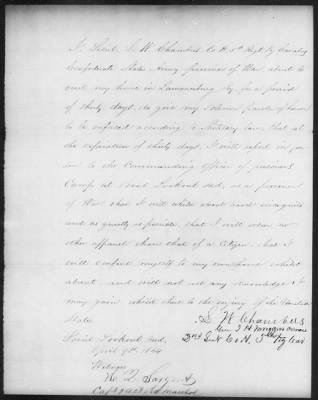 I, Lieut. S. W. Chambers Co. H. 5th Regt. Ky Cavalry
Confederate States Army prisoner of War, about to
visit my home in Ky. for a period
of thirty days, do give my solemn parole of honor
to be enforced according to Military law, that at
the expiration of thirty days, I will report in per
son to the Commanding Officer of prisoners
Camp at Point Lookout Md., as a prisoner
of War, that I will while absent travel incognito
and as quietly as possible, that I will wear no
other apparel than that of a Citizen, that I
will confine myself to my own home whilst
absent, and will not use any knowledge I
may gain whilst there to the injury of the United
States.
S W Chambers
Gen J H Morgans Command
2nd Lieut Co H. 5 Ky Cav
Point Lookout Md.
April 9th 1864
Witness
H. E. Sargent
Capt